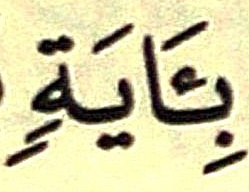 بِـَٔايَةٍ